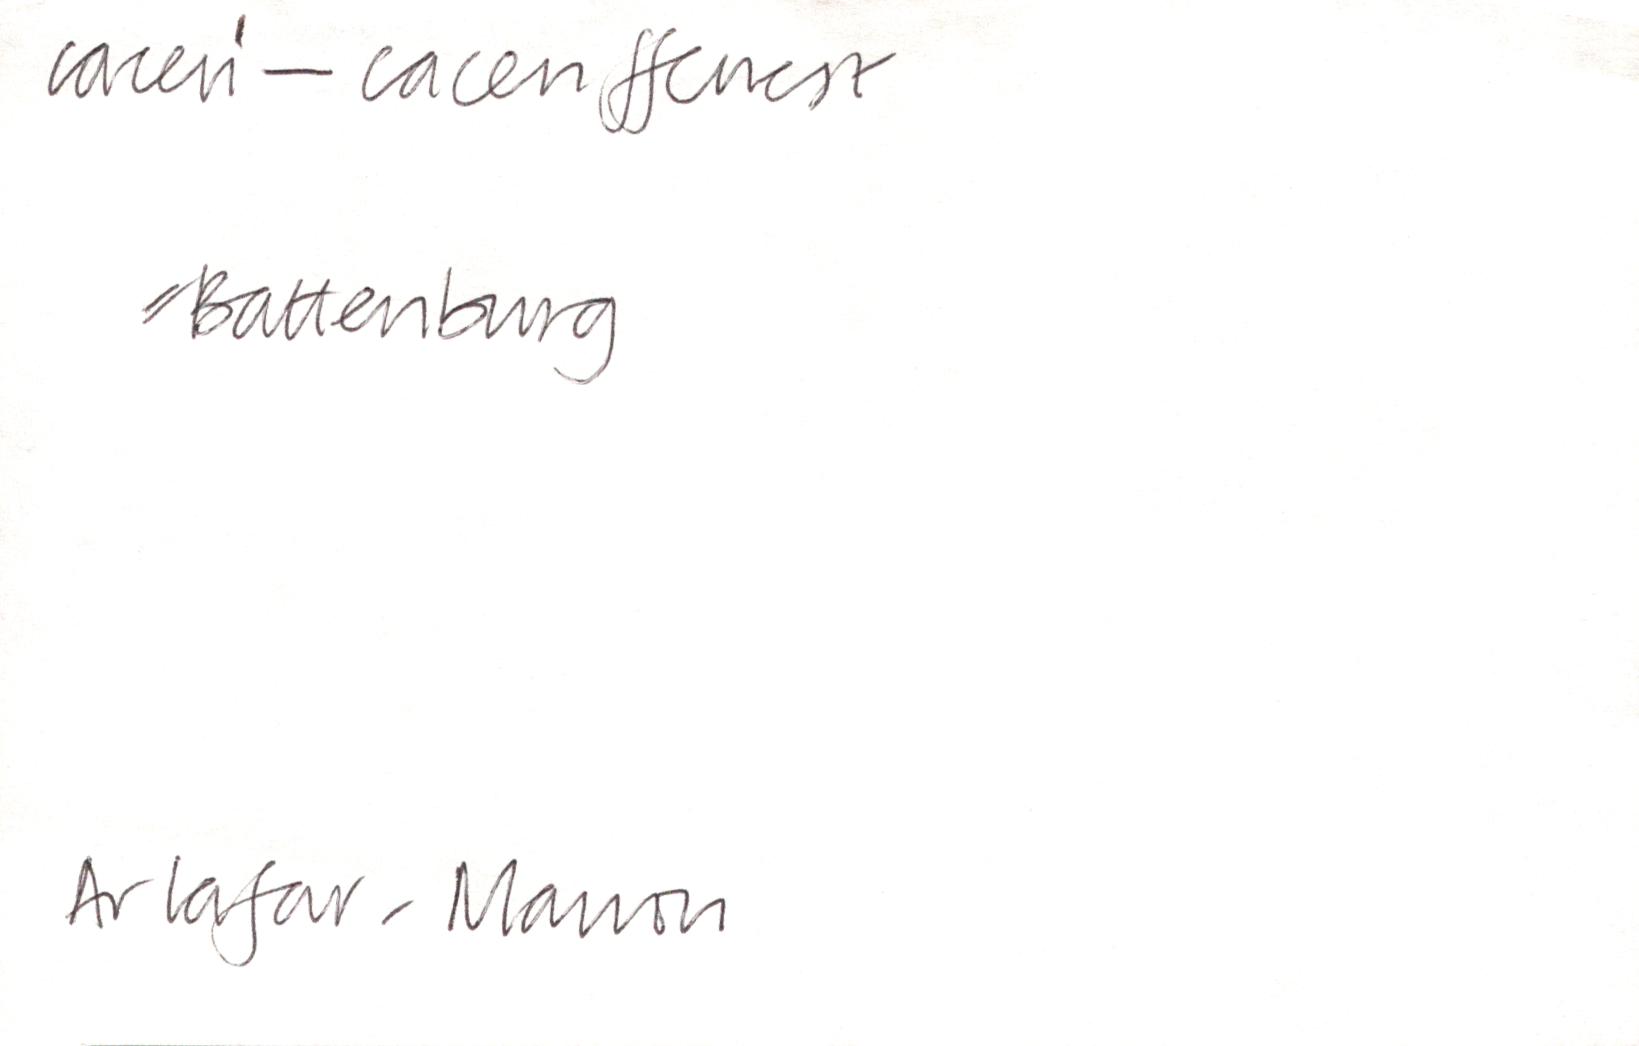 caceri — cacen ffenest
= Battenburg
Ar lafar - Manon